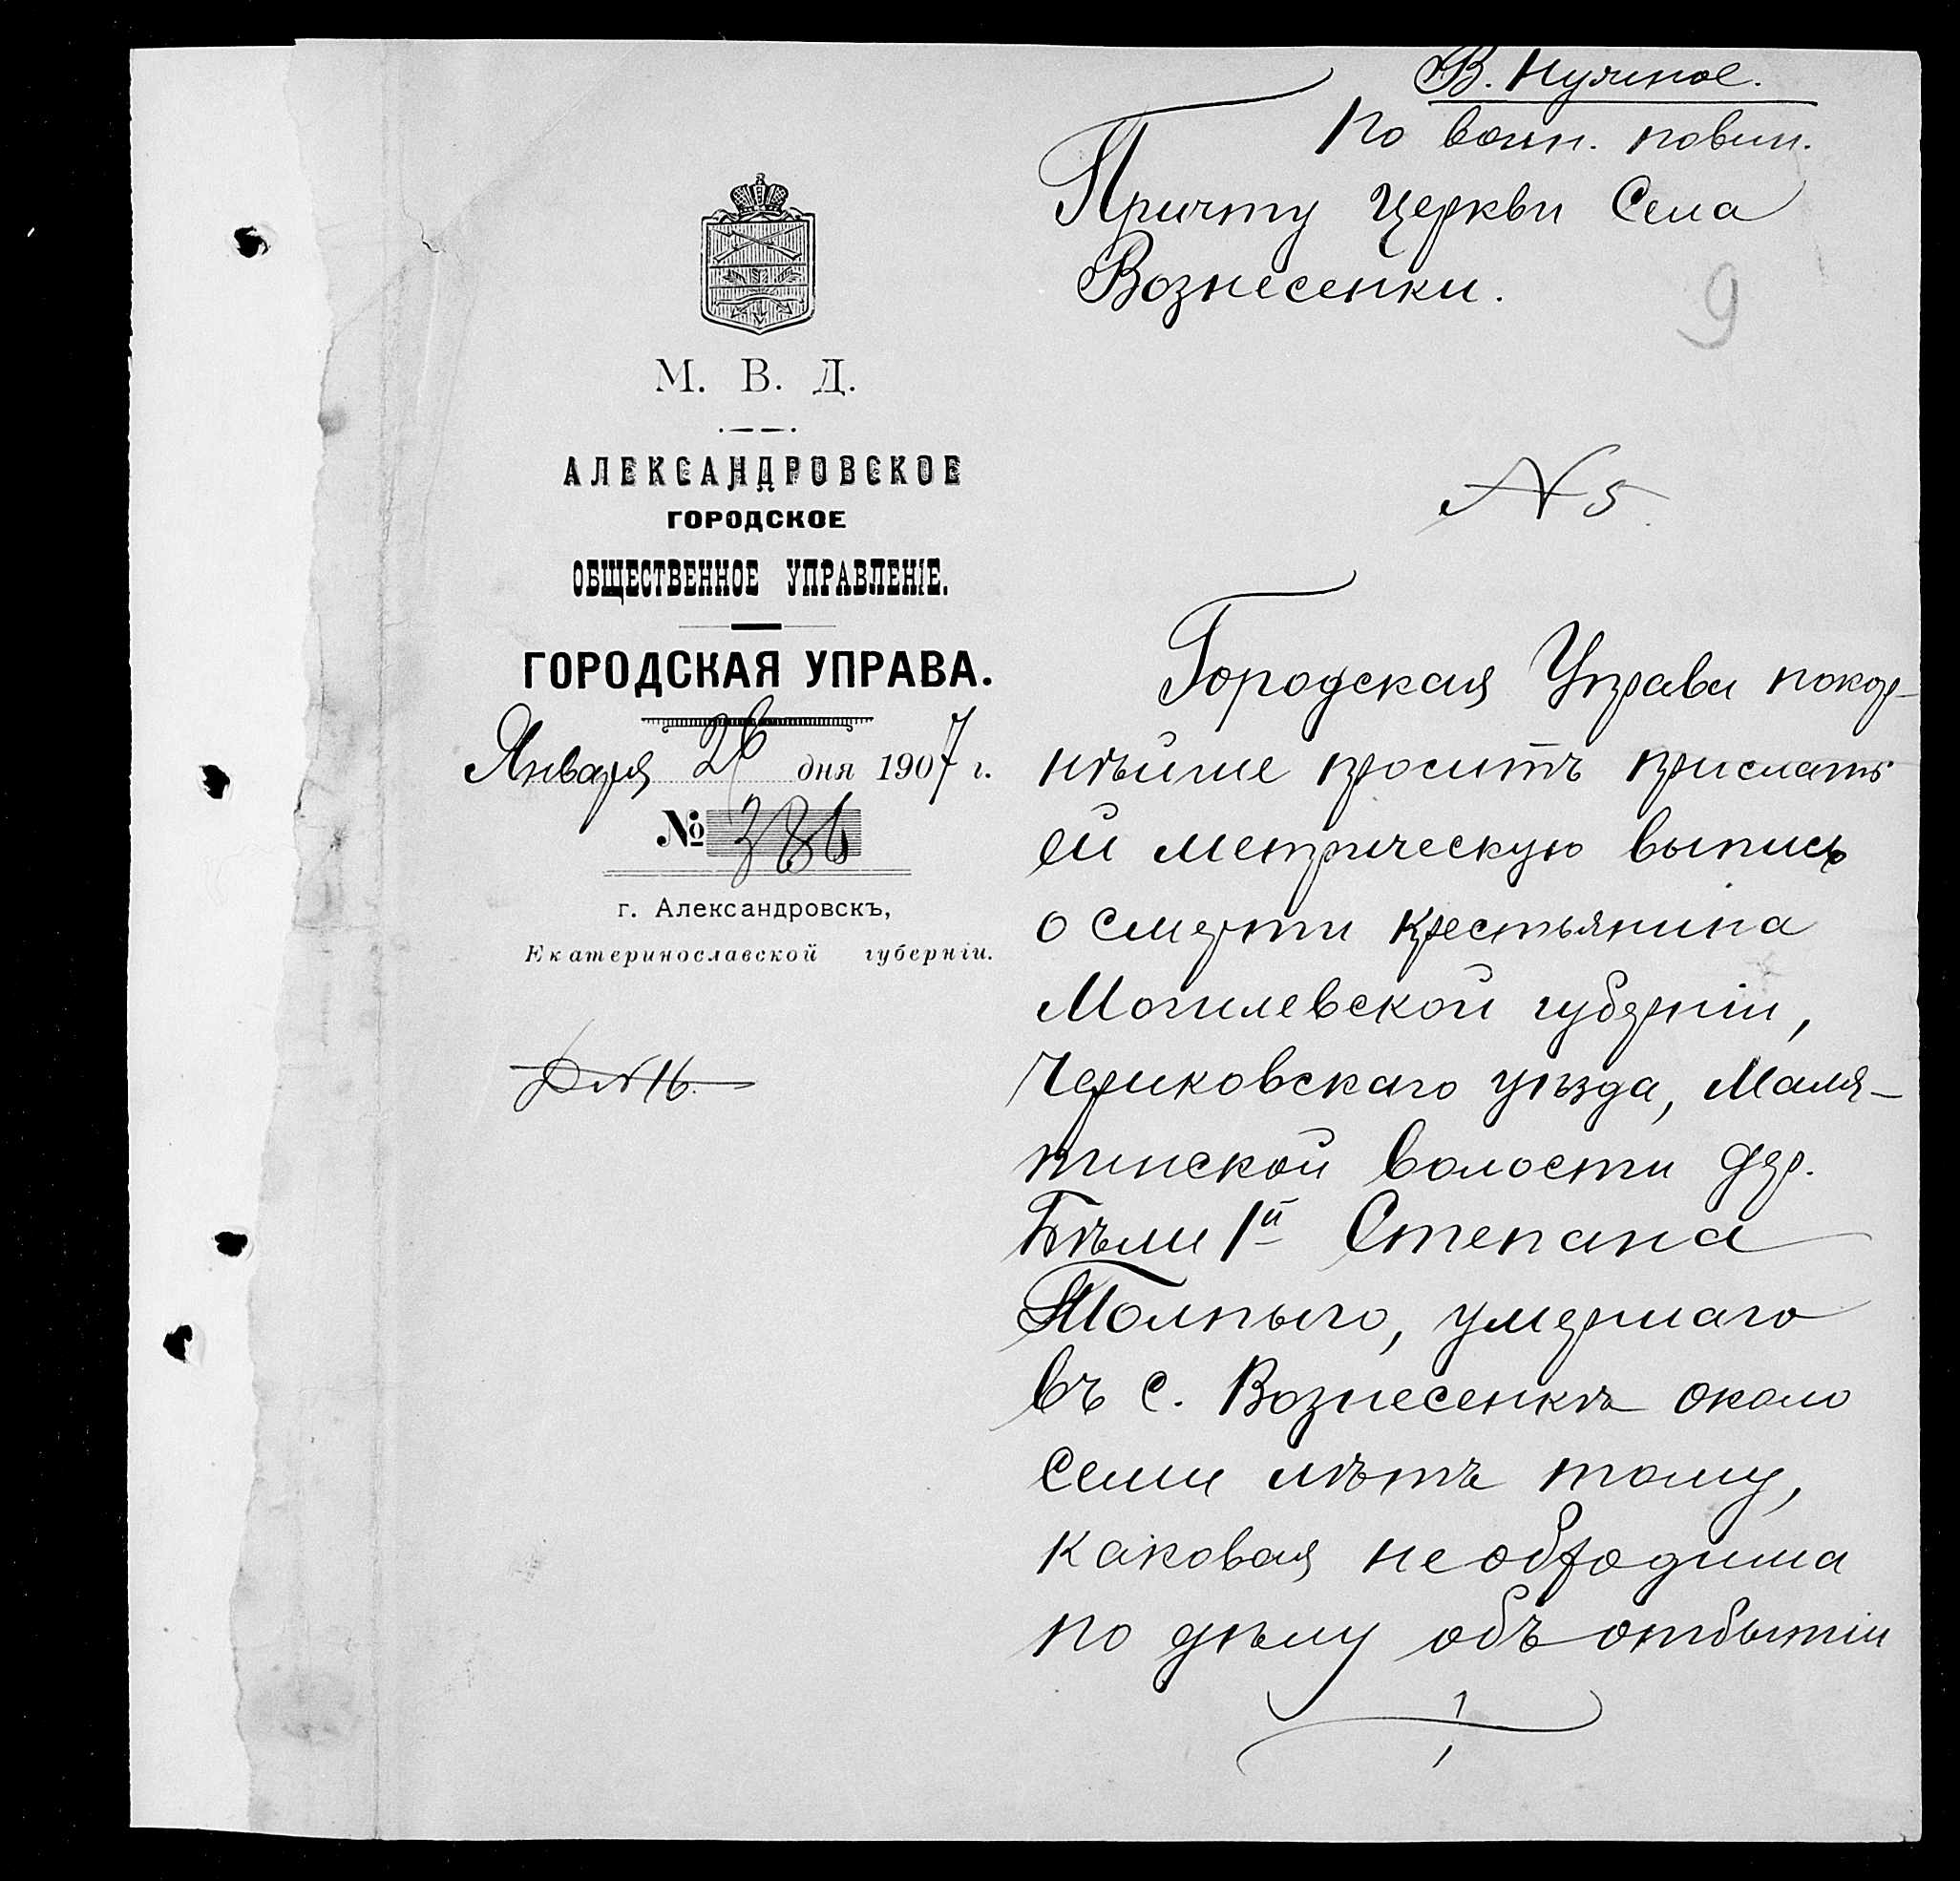 В. Нужное.
По воин. повин.
Причту Церкви Села
Вознесенки.
9
М. В. Д.
АЛЕКСАНДРОВСКОЕ
ГОРОДСКОЕ
ОБЩЕСТВЕННОЕ УПРАВЛЕНІЕ.
ГОРОДСКАЯ УПРАВА.
Января 26 дня 1907 г.
№ 386
г. Александровскъ,
Екатеринославской губерніи.
N 16.
N 5.
Городская Управа покор-
нѣйше проситъ прислать
ей метрическую выпись
о смерти крестьянина
Могилевской губерніи,
Чериковскаго уѣзда, Маля-
тинской волости дер.
Бѣли 1й Степана
Толпыго, умершаго
въ с. Вознесенкѣ около
семи лѣтъ тому,
каковая необходима
по дѣлу объ отбытіи